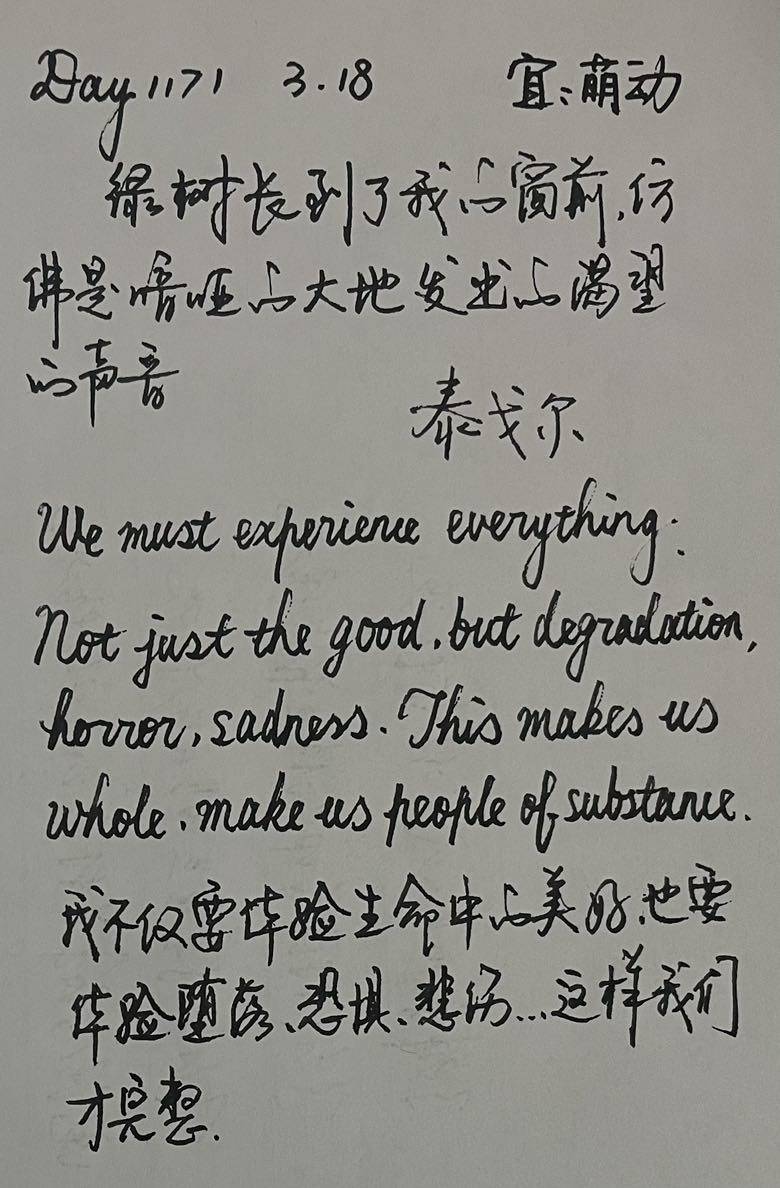 Day 1171 3.18 宜：萌动
绿树长到了我的窗前，仿
佛是喑哑的大地发出的渴望
的声音
泰戈尔
We must experience everything.
Not just the good, but degradation,
horror, sadness. This makes us
whole, make us people of substance.
我不仅要体验生命中的美好，也要
体验堕落、恐惧、悲伤...这样我们
才完整.